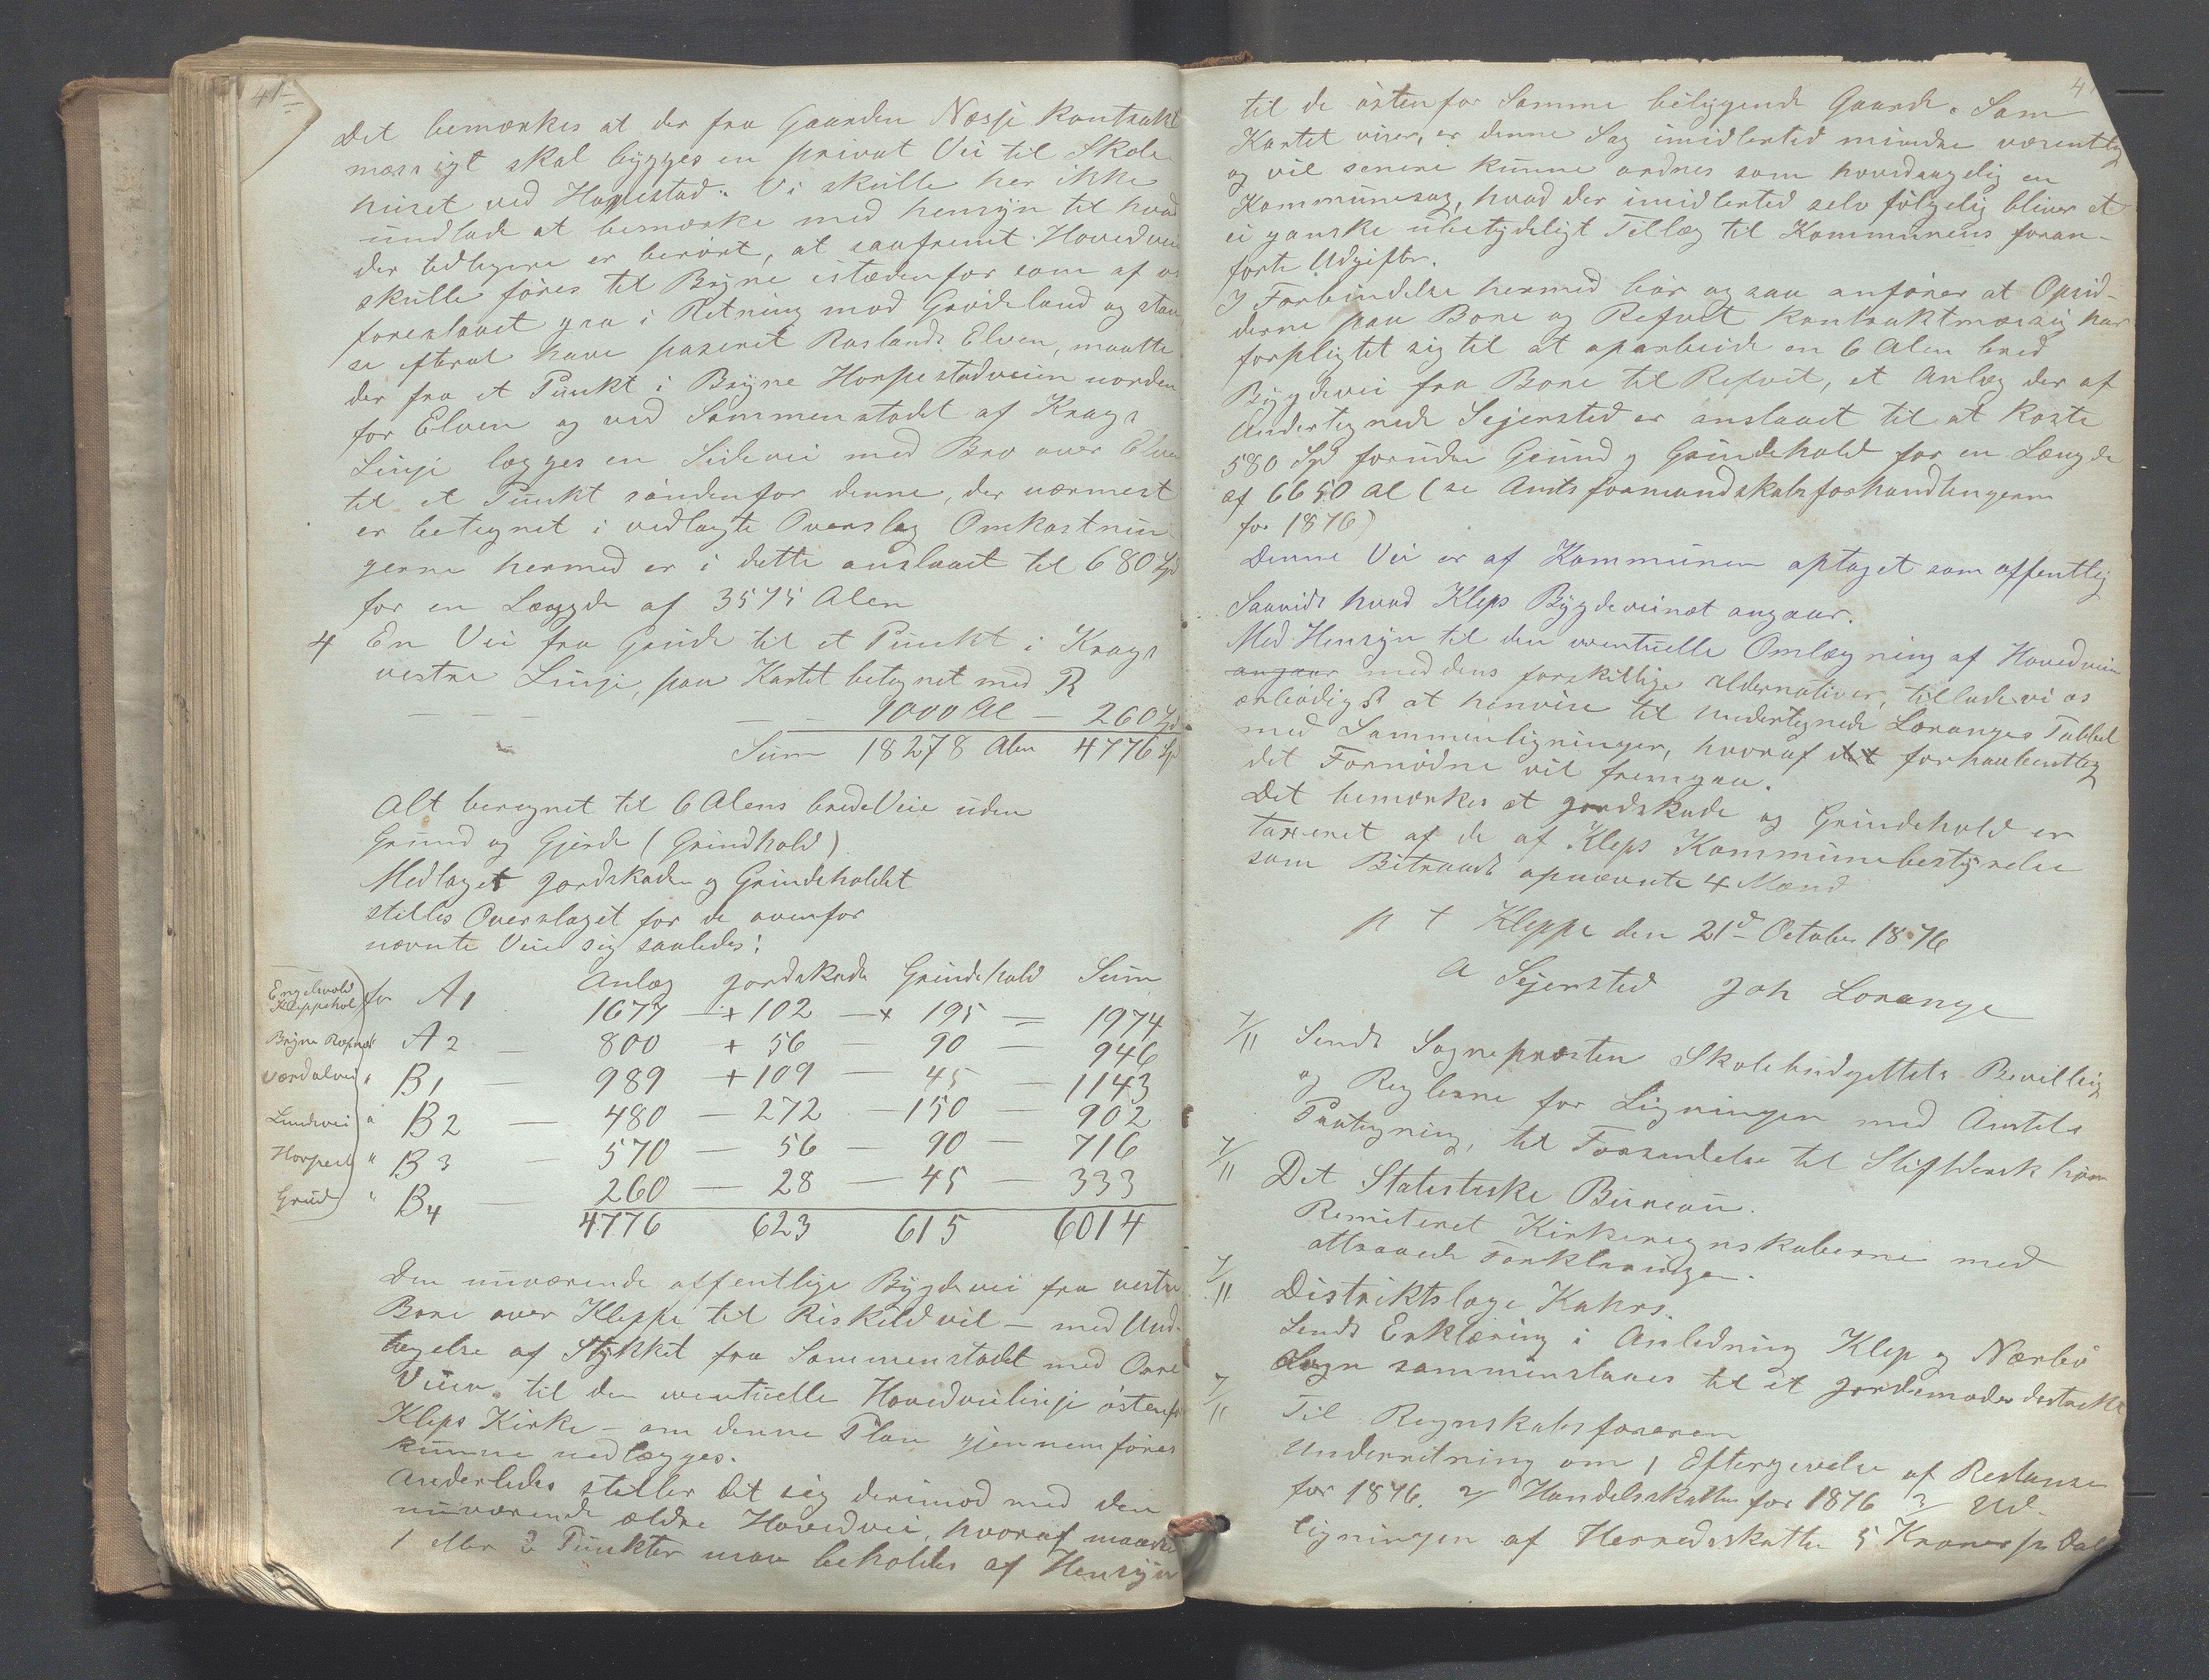 41
Det bemærkes at der fra Gaarden Næsje kontrakt
mæssigt skal bygges en privat Vei til Skole
huset ved Horpestad. Vi skulle her ikke
undlade at bemærke med hensyn til hvad
der tidligere er berørt, at saafremt Hovedvei
skulle føres til Bryne istædenfor som af os
foreslaaet gaa i Retning mod Grødeland og
se efteral have paseret Roslands Elven, maatte
der fra et Punkt i Bryne Horpestadveien norden
for Elven og ved Sammenstødet af Krags
Linje lægges en Sidevei med Bro over Elve
til et Punkt søndenfor denne, der nærmest
er betegnet i vedlagte Overslag Omkostnin
gerne hermed er i dette anslaaet til 680 Spd
for en Længde af 3575 Alen
4 En Vei fra Grude til et Punkt i Krags
vestre Linje, paa Kartet betegnet med R
— — — — — — 1000 Al — 260 Spd
Sum 18278 Alen 4776 Spd
Alt beregnet til 6 Alens brede Veie uden
Grund og Gjerde (Grindhold)
Medtaget Jordskaden og Grindeholdet
stilles Overslaget for de ovenfor
nævnte Veie sig saaledes:
Anlæg Jordskade Grindehold Sum
Engelsvold Kleppehol for A1 1677 + 102 + 195 = 1974
Bryne A2 — 800 + 56 — 90 — 946
Værdalvei " B1 — 989 + 109 — 45 — 1143
Lundevei " B2 — 480 — 272 — 150 — 902
Horpest " B3 — 570 — 56 — 90 — 716
Grude " B4 — 260 — 28 — 45 — 333
4776 623 615 6014
Den nuværende offentlige Bygdevei fra vestre
Bore over Kleppe til — med Und-
tagelse af Stykket fra Sammenstødet med Orre
Veien til den eventuelle Hovedveilinje østenfor
Kleps Kirke — om denne Plan gjennemføres
kunne nedlægges.
Anderledes stiller det sig derimod med den
nuværende ældre Hovedvei, hvoraf maaske
1 eller 2 Punkter maa beholdes af Hensyn
4
til de østenfor Samme beliggende Gaarde. Som
Kartet viser, er denne Sag imidlertid mindre væsentlig
og vil senere kunne ordnes som hovedsagelig en
Kommunesag, hvad der imidlertid selv følgelig bliver et
ei ganske ubetydeligt Tillæg til Kommunens foran-
førte Udgifter.
I Forbindelse hermed bør ogsaa anføres at Opsid-
derne paa Bore og Refvet kontraktmæssig har
forpligtet sig til at oparbeide en 6 Alen bred
Bygdevei fra Bore til Refvet, et Anlæg der af
Undertegnede Sejersted er anslaaet til at koste
580 Spd foruden Grund og Grindehold for en Længde
af 6650 Al (se Amtsformandskabsforhandlingerne
for 1876)
Denne Vei er af Kommunen optaget som offentlig
Saavidt hvad Kleps Bygdeveinæt angaar.
Med Hensyn til den eventuelle Omlægning af Hovedveien
angaar med dens forskjellige Alternativer, tillade vi os
ærbødigst at henvise til Undertegnede Loranges Tabbel
med Sammenligninger, hvoraf det forhaabentlig
det Fornødne vil fremgaa.
Det bemærkes at Jordskade og Grindehold er
taxeret af de af Kleps Kommunebestyrelse
som Bitraadt opnævnte 4 Mænd
p t Kleppe den 21d October 1876
A Sejersted Joh Lorange
7/11 Sendt Sognepræsten Skolebudgettets Bevilling
og Reglerne for Ligningen med Amtets
Paategning, til Forsendelse til Stiftsdirek
7/11 Det Statistiske Bureau.
Remiteret Kirkeregnskaberne med
attraaede Forklaringer.
7/11 Distriktslæge Kahrs.
Sendt Erklæring i Anledning Klep og Nærbø
Sogn sammenslaaes til et Jordemoderdistrikt
7/11 Til Regnskabsføreren
Underretning om 1 Eftergivelse af Restanse
for 1876. 2/ Handelsskatten for 1876 3/ Ud-
ligningen af Herredsskatte 5 Kroner pr Dal